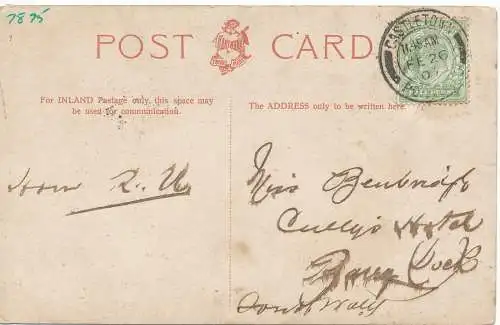 7875
POST CARD
CASTLETOWN
11.45 AM
FE 26
07
For INLAND Postage only, this space may
be used for communication.
The ADDRESS only to be written here.
from R. U.
Miss Benbridge
Cully's Hotel
Barry Dock
South Wales